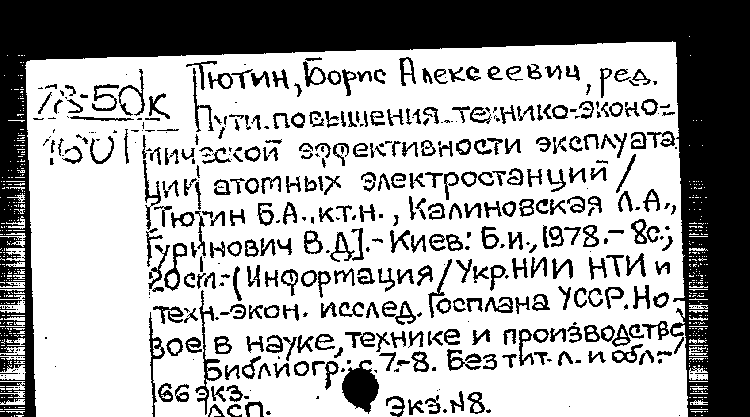 Тютин, Борис Алексеевич, ред.
78-50к
Пути повышения технико-эконо-
1601
мической эффективности эксплуата
ции атомных электростанций /
[Тютин Б.А., к.т.н., Калиновская Л.А.,
Гуринович В.Д]. - Киев: Б.и., 1978. - 8с.;
20см. - (Информация / Укр.НИИ НТИ и
техн.-экон. исслед. Госплана УССР. Но-
вое в науке, технике и производстве)
Библиогр.: с.7-8. Без тит. л. и обл. -
66 экз.
АСП. Экз.N8.